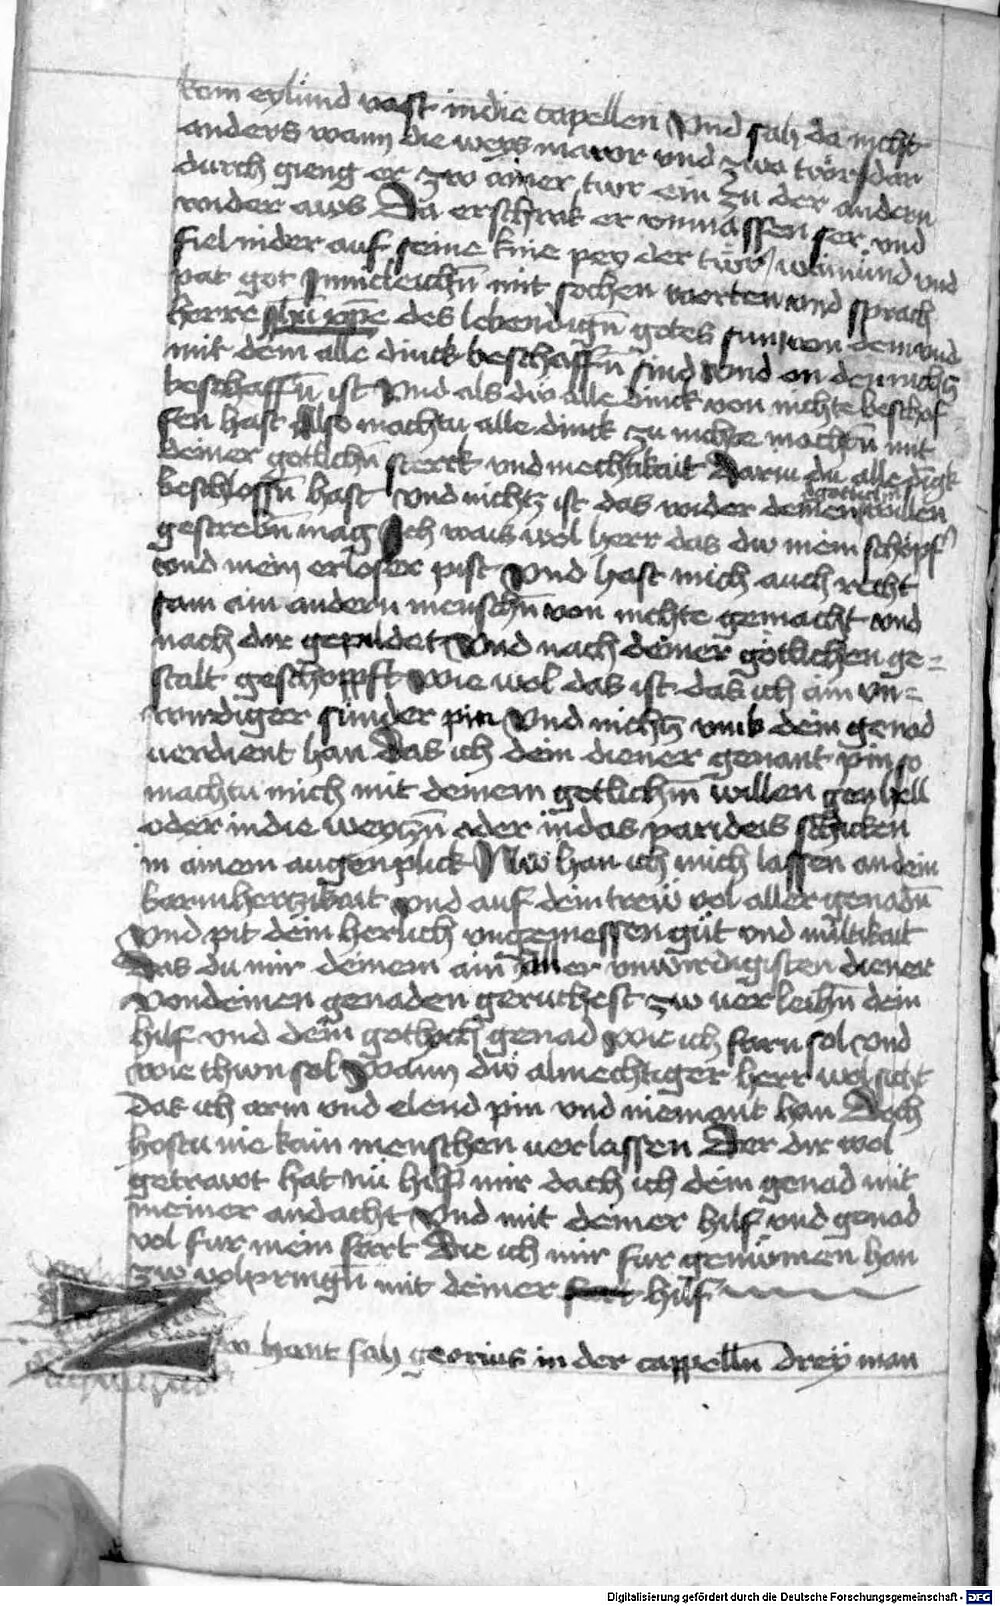 kom eylund vast in die capellen Vnd sah da nicht
anders wann die weys mawr vnd zwo türr dar
durch gieng er zw ainer tur ein zu der andern
wider aws Da erschrak er vnmassen ser vnd
fiel nider auf seine knie pey der tür / wainund vnd
pat got Innicleichn̄ mit solchen worten vnd sprach
herre jhū xp̄e des lebendign̄ gotes sun von dem vnd
mit dem alle dinck beschaffn̄ sind vnd on den nichtz
beschaffn̄ ist Vnd als du alle dinck von nichte beschof
fen hast Also machtu alle dinck zu nichte machn̄ mit
deiner gotlichn̄ sterck vnd mechtikait Darin du alle dingk
beschlossn̄ hast vnd nichtz ist das wider deinen gotlichn̄ willen
gestrebn̄ mag Ich wais wol herr das du mein schöpf
vnd mein erloser pist Vnd hast mich auch recht
sam ain andern menschn̄ von nichte gemacht vnd
nach dir gepildet Vnd nach deiner götlichen ge=
stalt geschöppft wie wol das ist das ich ain vn=
wirdiger sünder pin Vnd nichtz vmb dein genad
verdient han Das ich dein diener genant pin so
machtu mich mit deinem gotlichm̄ willen gen hell
oder in die weyczn̄ oder in das parideis schicken
in ainem augenplick Nw han ich mich lassen an dein
barmhertzikait vnd auf dein trew vol aller genadn̄
Vnd pit dein herlich vngemessen güt vnd miltikait
Das du mir deinem aller vnwirdigisten diener
von deinen genaden geruchest zw verleihn̄ dein
hilf vnd dein gotlich genad wie ich farn sol vnd
wie thwn sol Wann dw almechtiger herr wol sicht
Das ich arm vnd elend pin vnd niemant han Doch
hostu nie kain menschen verlassen Der dir wol
getrawt hat nu hilf mir dach ich dein genad mit
meiner andacht Vnd mit deiner hilf vnd genad
vol fur mein fert Die ich mir fur genümen han
zw volpringn̄ mit deiner hilf
Zw hant sah georius in der cappelln̄ drey man
Digitalisierung gefördert durch die Deutsche Forschungsgemeinschaft - DFG